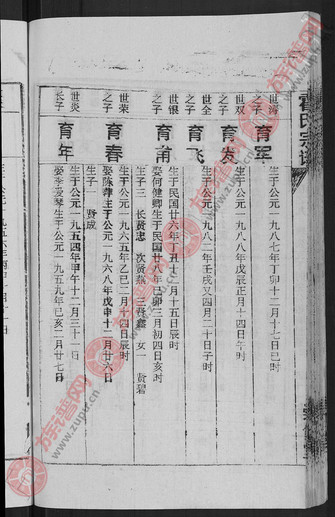 霍氏宗谱
世海之子
育军
生于公元一九八七年丁卯十二月十七日巳时
世双之子
育发
生于公元一九八八年戊辰正月十四日午时
世全之子
育飞
生于公元一九八二年壬戌又四月二十日子时
世银之子
育甫
生于民国廿六年丁丑十二月十五日辰时
娶何健卿生于民国廿八年己卯三月初四日亥时
生子三 长贤忠 次贤燕 三吾鑫 女一 贤碧
世荣之子
育春
生于公元一九六五年乙巳二月十四日辰时
娶陈群生于公元一九六八年戊申十二月廿六日
生子一 贤成
世炎长子
育年
生于公元一九五四年甲午十二月三十一日
娶李爱琴生于公元一九五九年己亥二月廿七辰
族谱网
www.zupu.cn
族谱网
www.zupu.cn